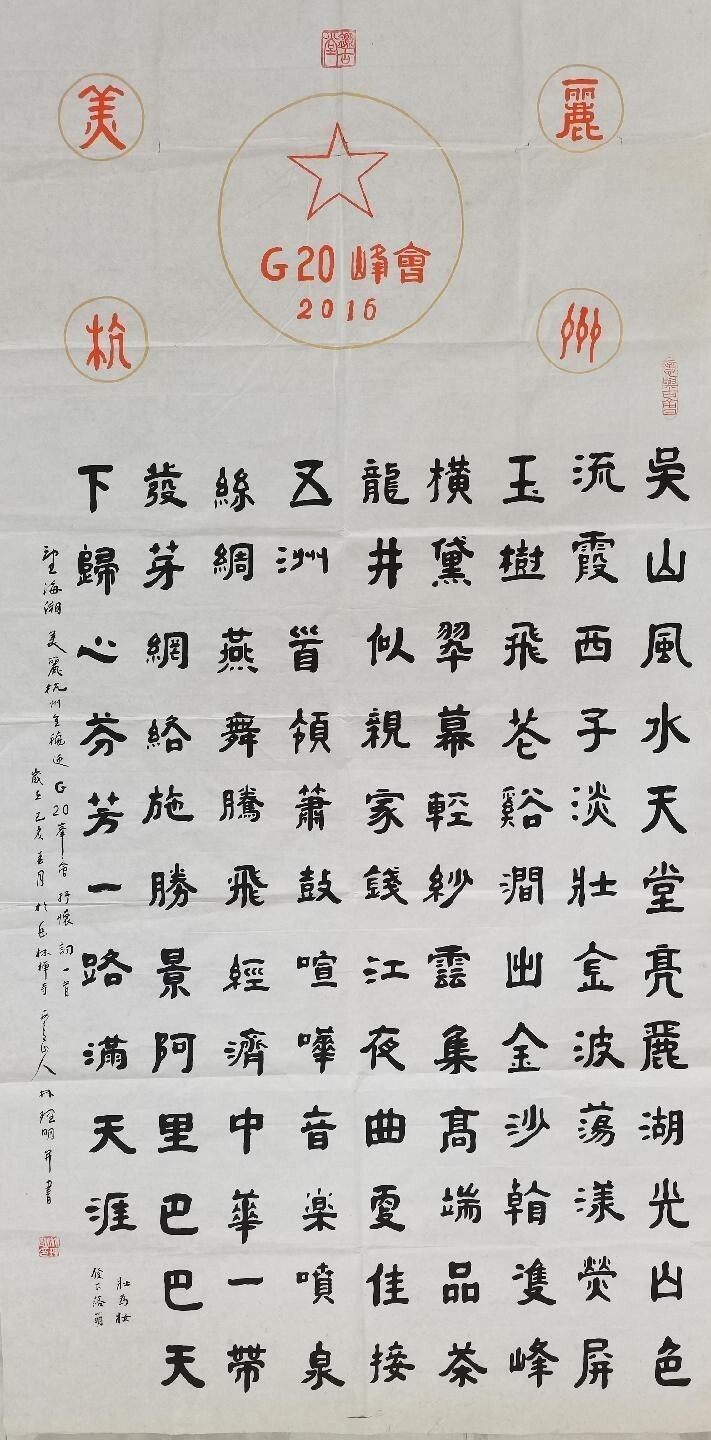 美麗
G20峰會
2016
杭州
吳山風水天堂亮麗湖光山色
流霞西子淡壯金波蕩漾熒屏
玉樹飛花谿澗出金沙翰進峰
橫黛翠幕輕紗雲集高端品茶
龍井似親家錢江夜曲更佳接
五洲首領蕭鼓喧嘩音楽噴泉
絲綢燕舞騰飛經濟中華一帶
發芽網絡施勝景阿里巴巴天
下歸心芬芳一路滿天涯
望海潮 美麗杭州 G20峯會 抒懷 詞一首
歲在己亥 月於 林禪寺 人 林 明并書
壯為妝